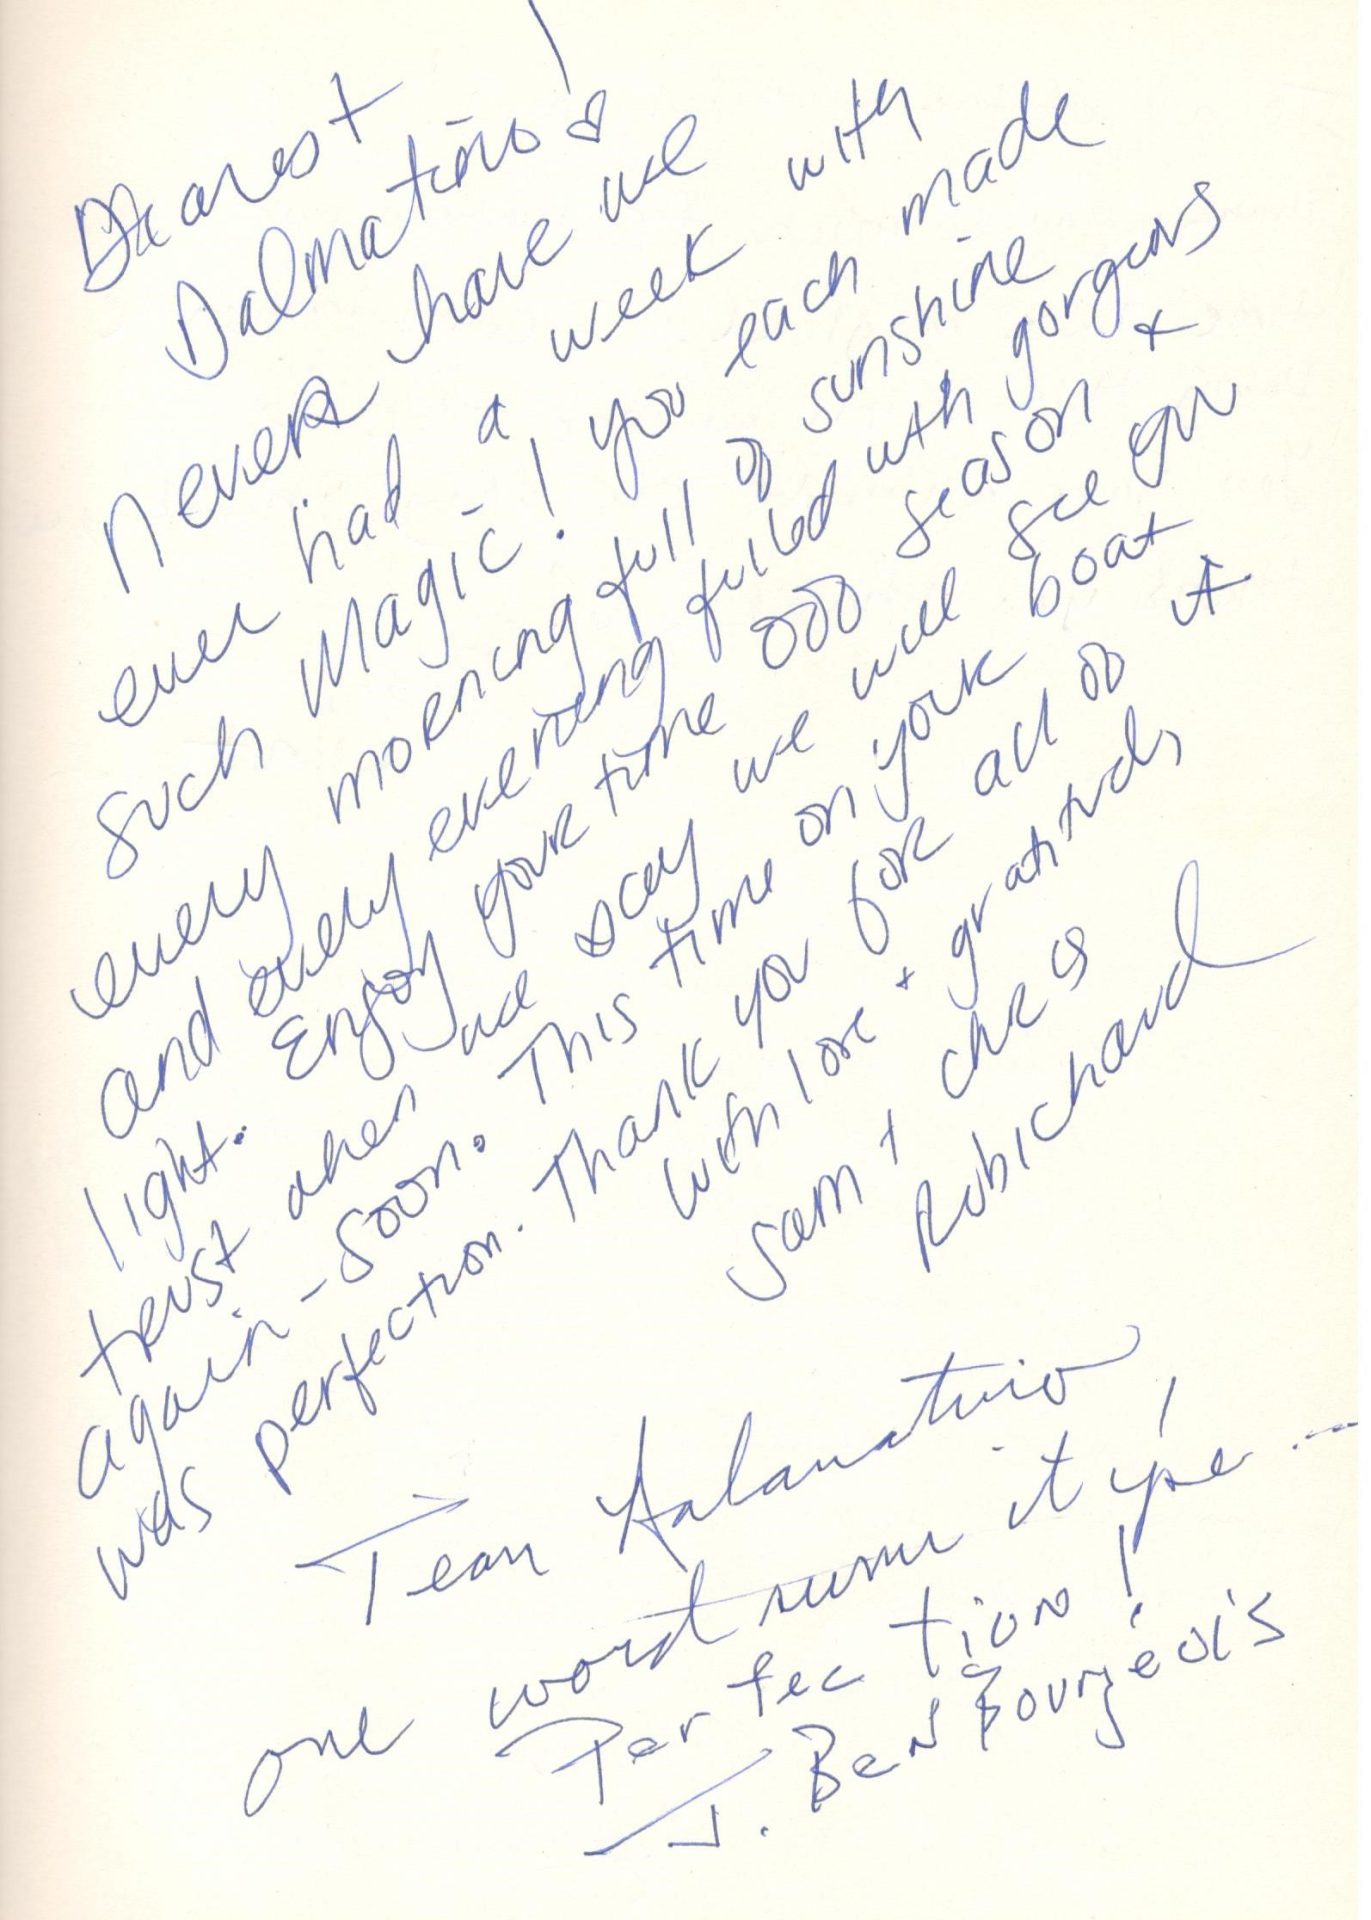 Dearest
Dalmatino!
never have we
ever had a week with
such magic! you each made
every morning full of sunshine
and every evening filled with gorgeous
light. Enjoy your time off season +
trust when we say we will see you
again - soon. This time on your boat
was perfection. Thank you for all of it
with love + gratitude,
Sam + Chris
Robichaud
Team Dalmatino
one word sums it up
Perfection!
J. Ben Bourgeois